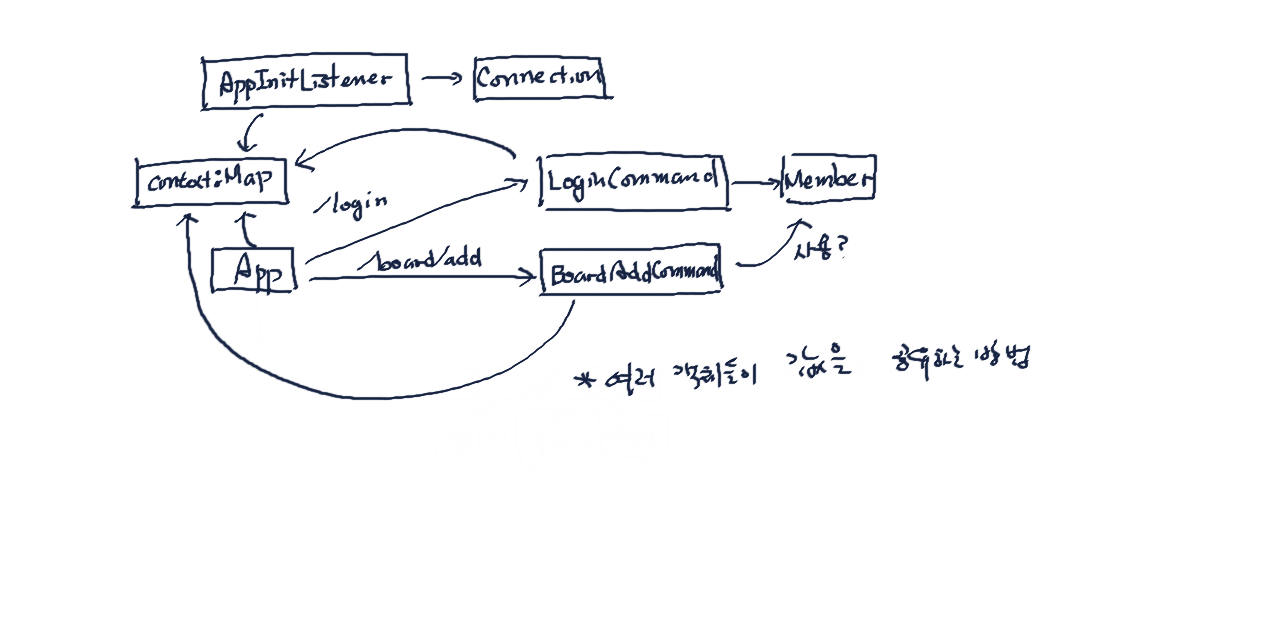 AppInitListener
Connection
context:Map
/login
LoginCommand
Member
사용?
App
/board/add
BoardAddCommand
* 여러 객체들이 값을 공유하는 방법